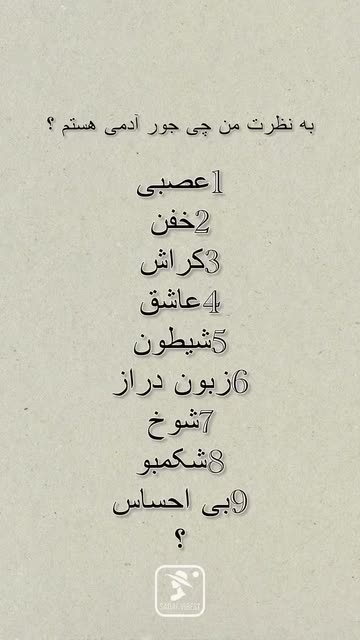 به نظرت من چی جور آدمی هستم ؟
1عصبی
2خفن
3کراش
4عاشق
5شیطون
6زبون دراز
7شوخ
8شکمبو
9بی احساس
؟